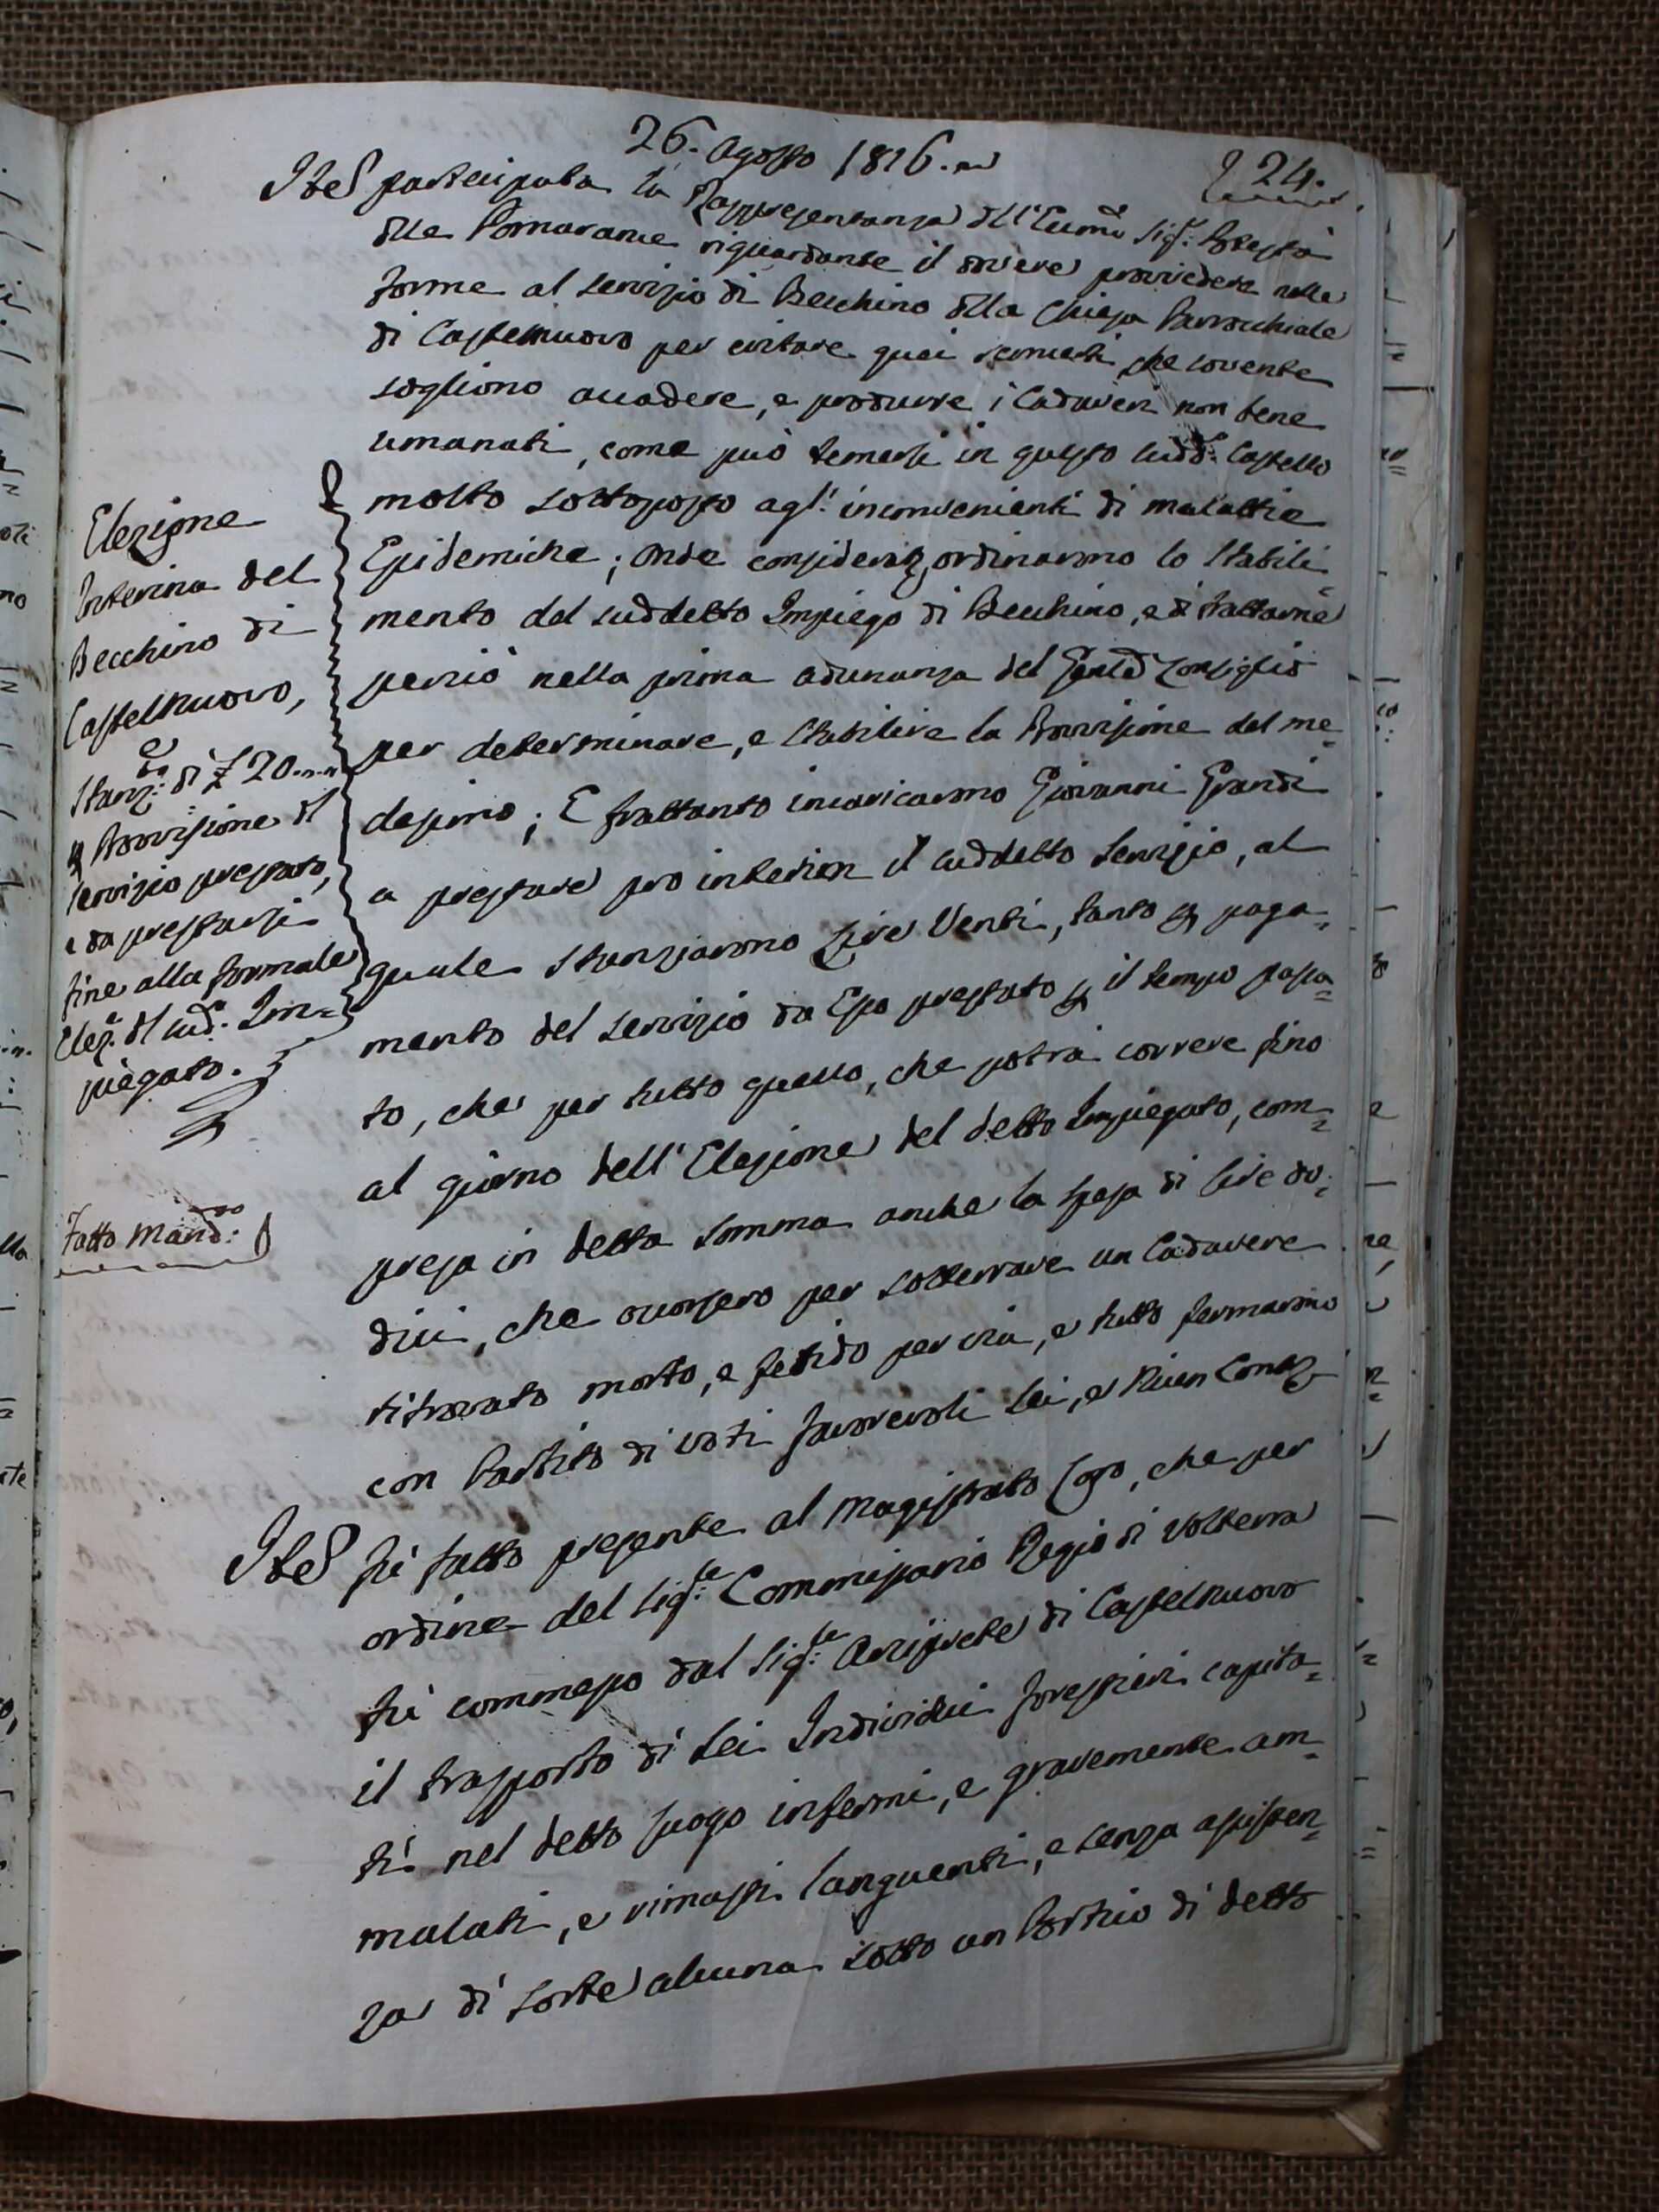 26. Agosto 1816.
24.
Ite participata la Rappresentanza dll' Eccmo Sigr: Potestà
dlle Pomarance riguardante il dovere provvedere nelle
forme al servizio di Becchino dlla Chiesa Parrochiale
di Castelnuovo per evitare quei che sovente
sogliono accadere, e produrre i Cadaveri non bene
umanati, come può temersi in questo sudd: Castello
molto sottoposto agl' inconvenienti di malattie
Epidemiche; Onde ordinarono lo Stabili=
mento del suddetto Impiego di Becchino, e di trattarne
perciò nella prima adunanza del Genle Consiglio
per determinare, e stabilire la Provvisione del me=
desimo; E frattanto incaricarono Giovanni Grandi
a prestare pro interim il suddetto Servizio, al
quale stanziarono Lire Venti, tanto p paga=
mento del servizio da Esso prestato p il tempo passa=
to, che per tutto quello, che potrà correre fino
al giorno dell' Elezione del detto Impiegato, com=
presa in detta somma anche la spesa di lire do=
dici, che occorsero per sotterrare un Cadavere
ritrovato morto, e fetido per via, e tutto fermarono
con Partito di voti favorevoli Sei, e Niun Cont
Ite fù fatto presente al Magistrato Loro, che per
ordine del Sigre: Commissario Regio di Volterra
fù commesso dal Sigre: Arciprete di Castelnuovo
il trasporto di Sei Individui forestieri capita=
ti nel detto luogo infermi, e gravemente am=
malati, e rimasti languenti, e senza assisten=
za di sorte alcuna sotto un Portico di detto
Elezione
Interina del
Becchino di
Castelnuovo,
e
Stanz: di £ 20
p Provvisione dl
servizio prestato,
e da prestarsi
fine alla formale
Elez: dl sud: Im=
piegato.
Fatto Mand: